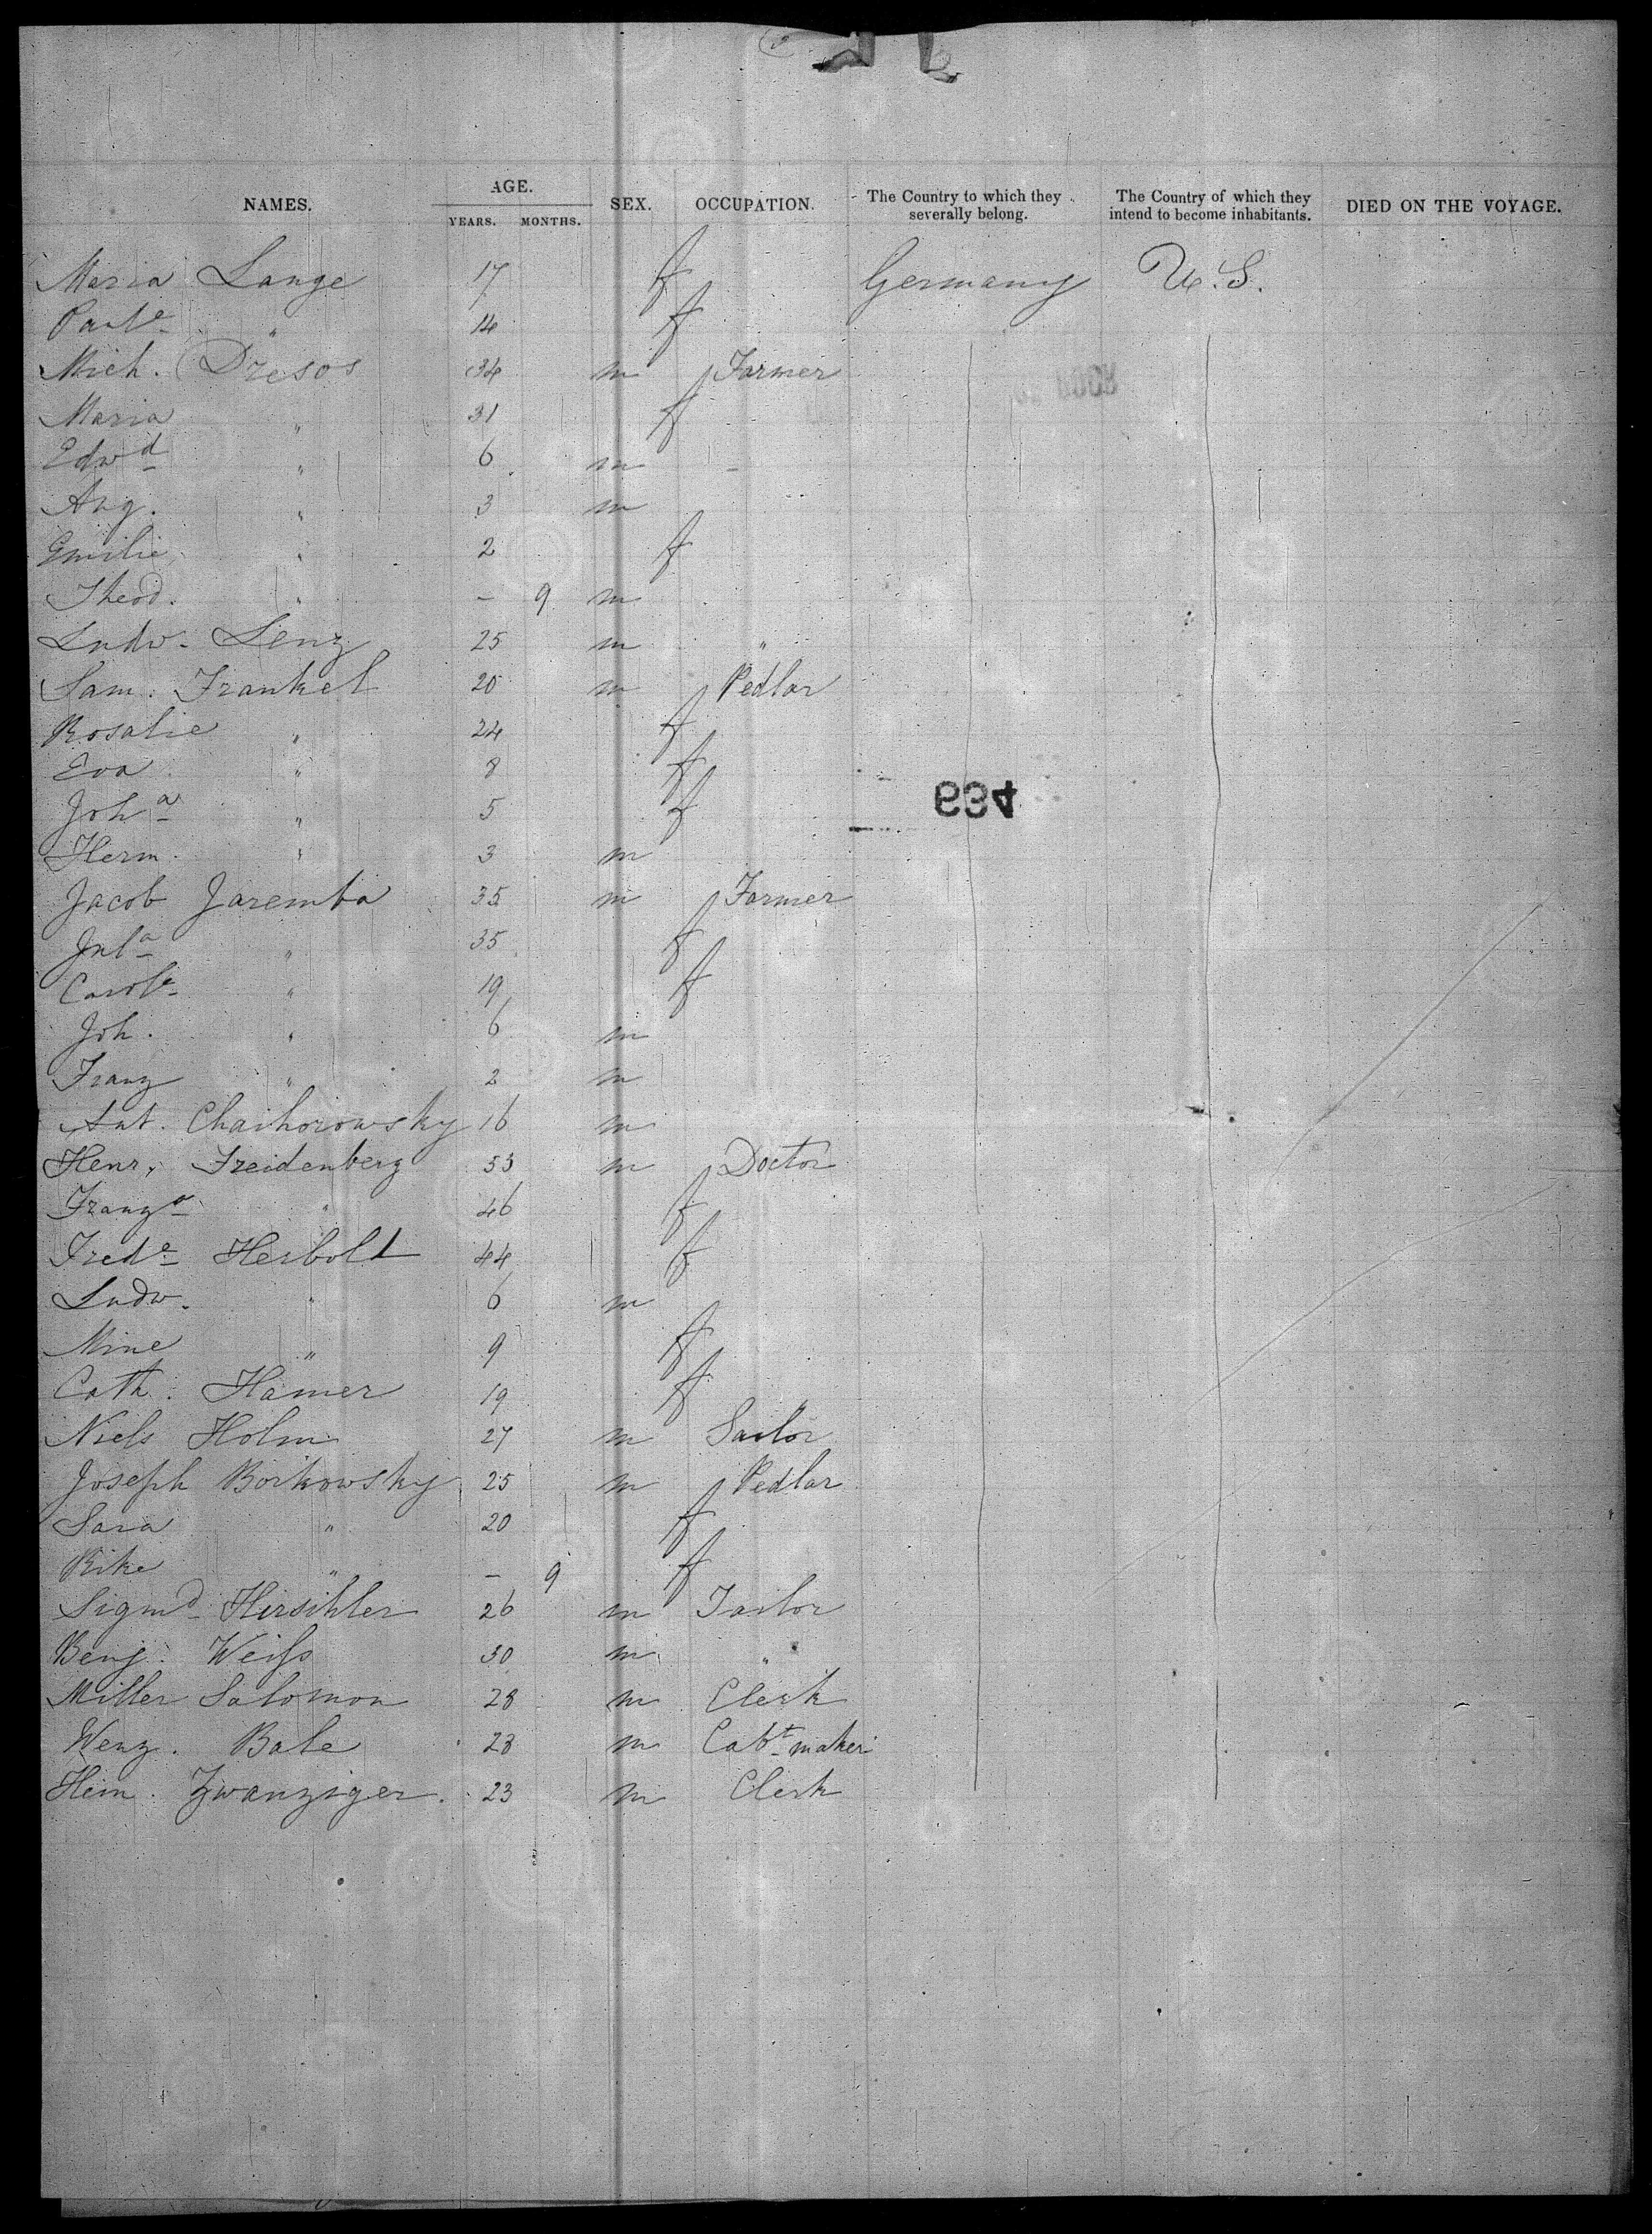 NAMES. AGE. YEARS. MONTHS. SEX. OCCUPATION. The Country to which they severally belong. The Country of which they intend to become inhabitants. DIED ON THE VOYAGE.
Maria Lange 17 f Germany U.S.
Paule " 14 f
Mich. Dresos 34 m Farmer
Maria " 31 f
Edwd " 6 m -
Aug. " 3 m
Emilie " 2 f
Theod. " - 9 m
Ludw. Lenz 25 m "
Sam. Frankel 20 m Pedlar
Rosalie " 24 f
Eva " 8 f
Joha " 5 f
634
Herm. " 3 m
Jacob Jaremba 35 m Farmer
Jula " 35 f
Carole " 19 f
Joh. " 6 m
Franz " 2 m
Ant. Chaihorowsky 16 m
Henr. Freidenberg 53 m Doctor
Franza " 46 f
Frede Herbold 44 f
Ludw. " 6 m
Mine " 9 f
Cath. Hamer 19 f
Niels Holm 27 m Sailor
Joseph Borkowsky 25 m Pedlar
Sara " 20 f
Rike " - 9 f
Sigmd Hirschler 26 m Tailor
Benj. Weiss 30 m "
Miller Salomon 28 m Clerk
Wenz. Bale 23 m Cabt maker
Hein. Zwanziger. 23 m Clerk